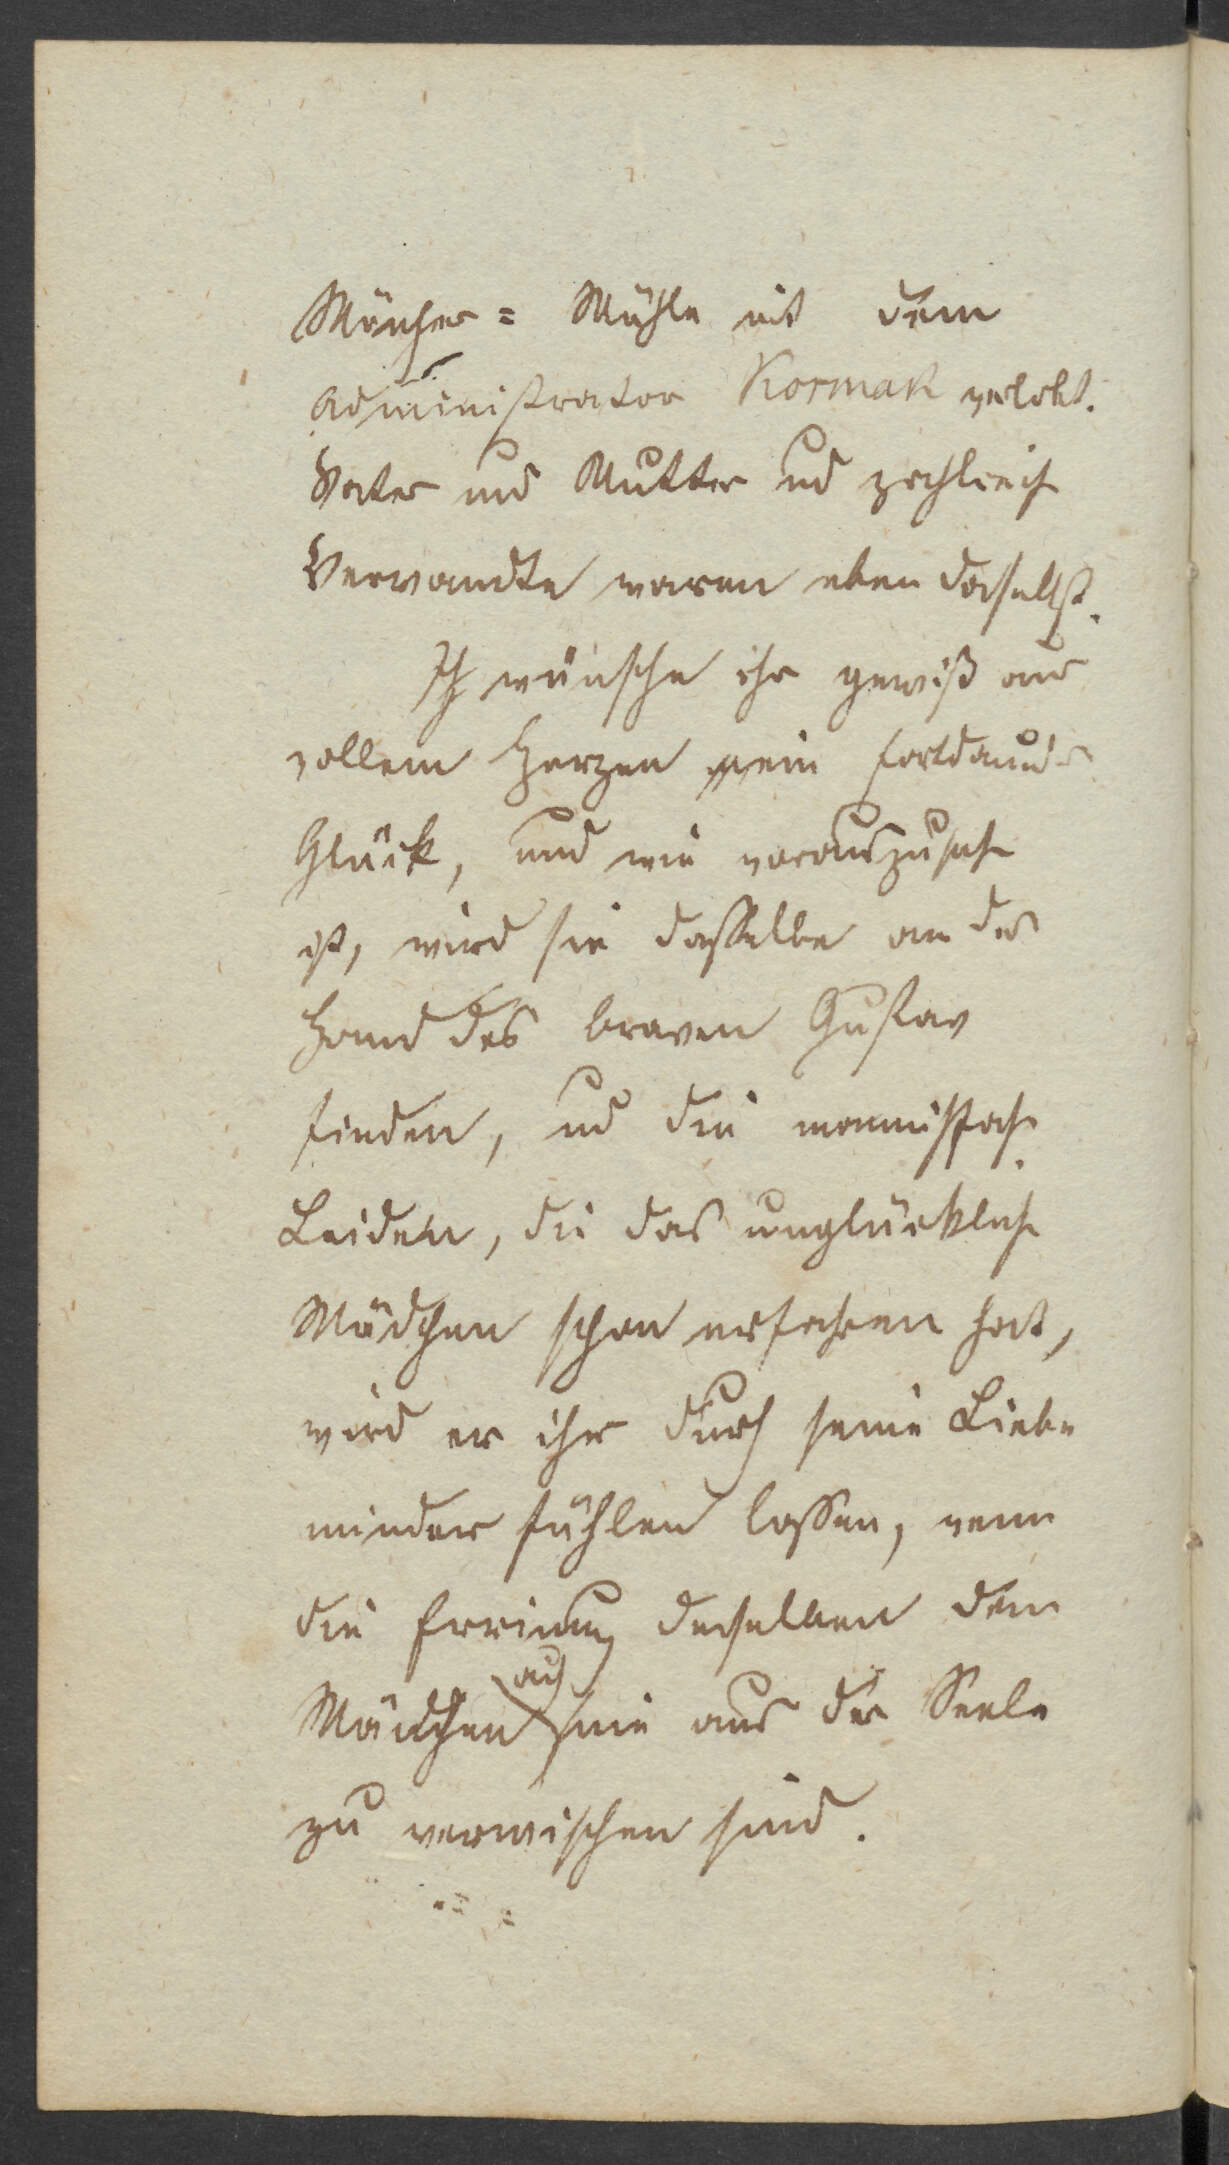 Möncher= Mühle mit dem
Administrator Kormak verlobt.
Vater und Mutter und zahlreich
Verwandte waren eben daselbst.
Ich wünsche ihr gewiß aus
vollem Herzen ein fortdaund
Glück, und wie vorauszusehe
ist, wird sie dasselbe an der
Hand des braven Gustav
finden, und die mannichfache
Leiden, die das unglückliche
Mädchen schon erfahren hat,
wird er ihr durch seine Liebe
minder fühlen lassen, wenn
die derselben dem
Mädchen auch nie aus der Seele
zu verwischen sind.